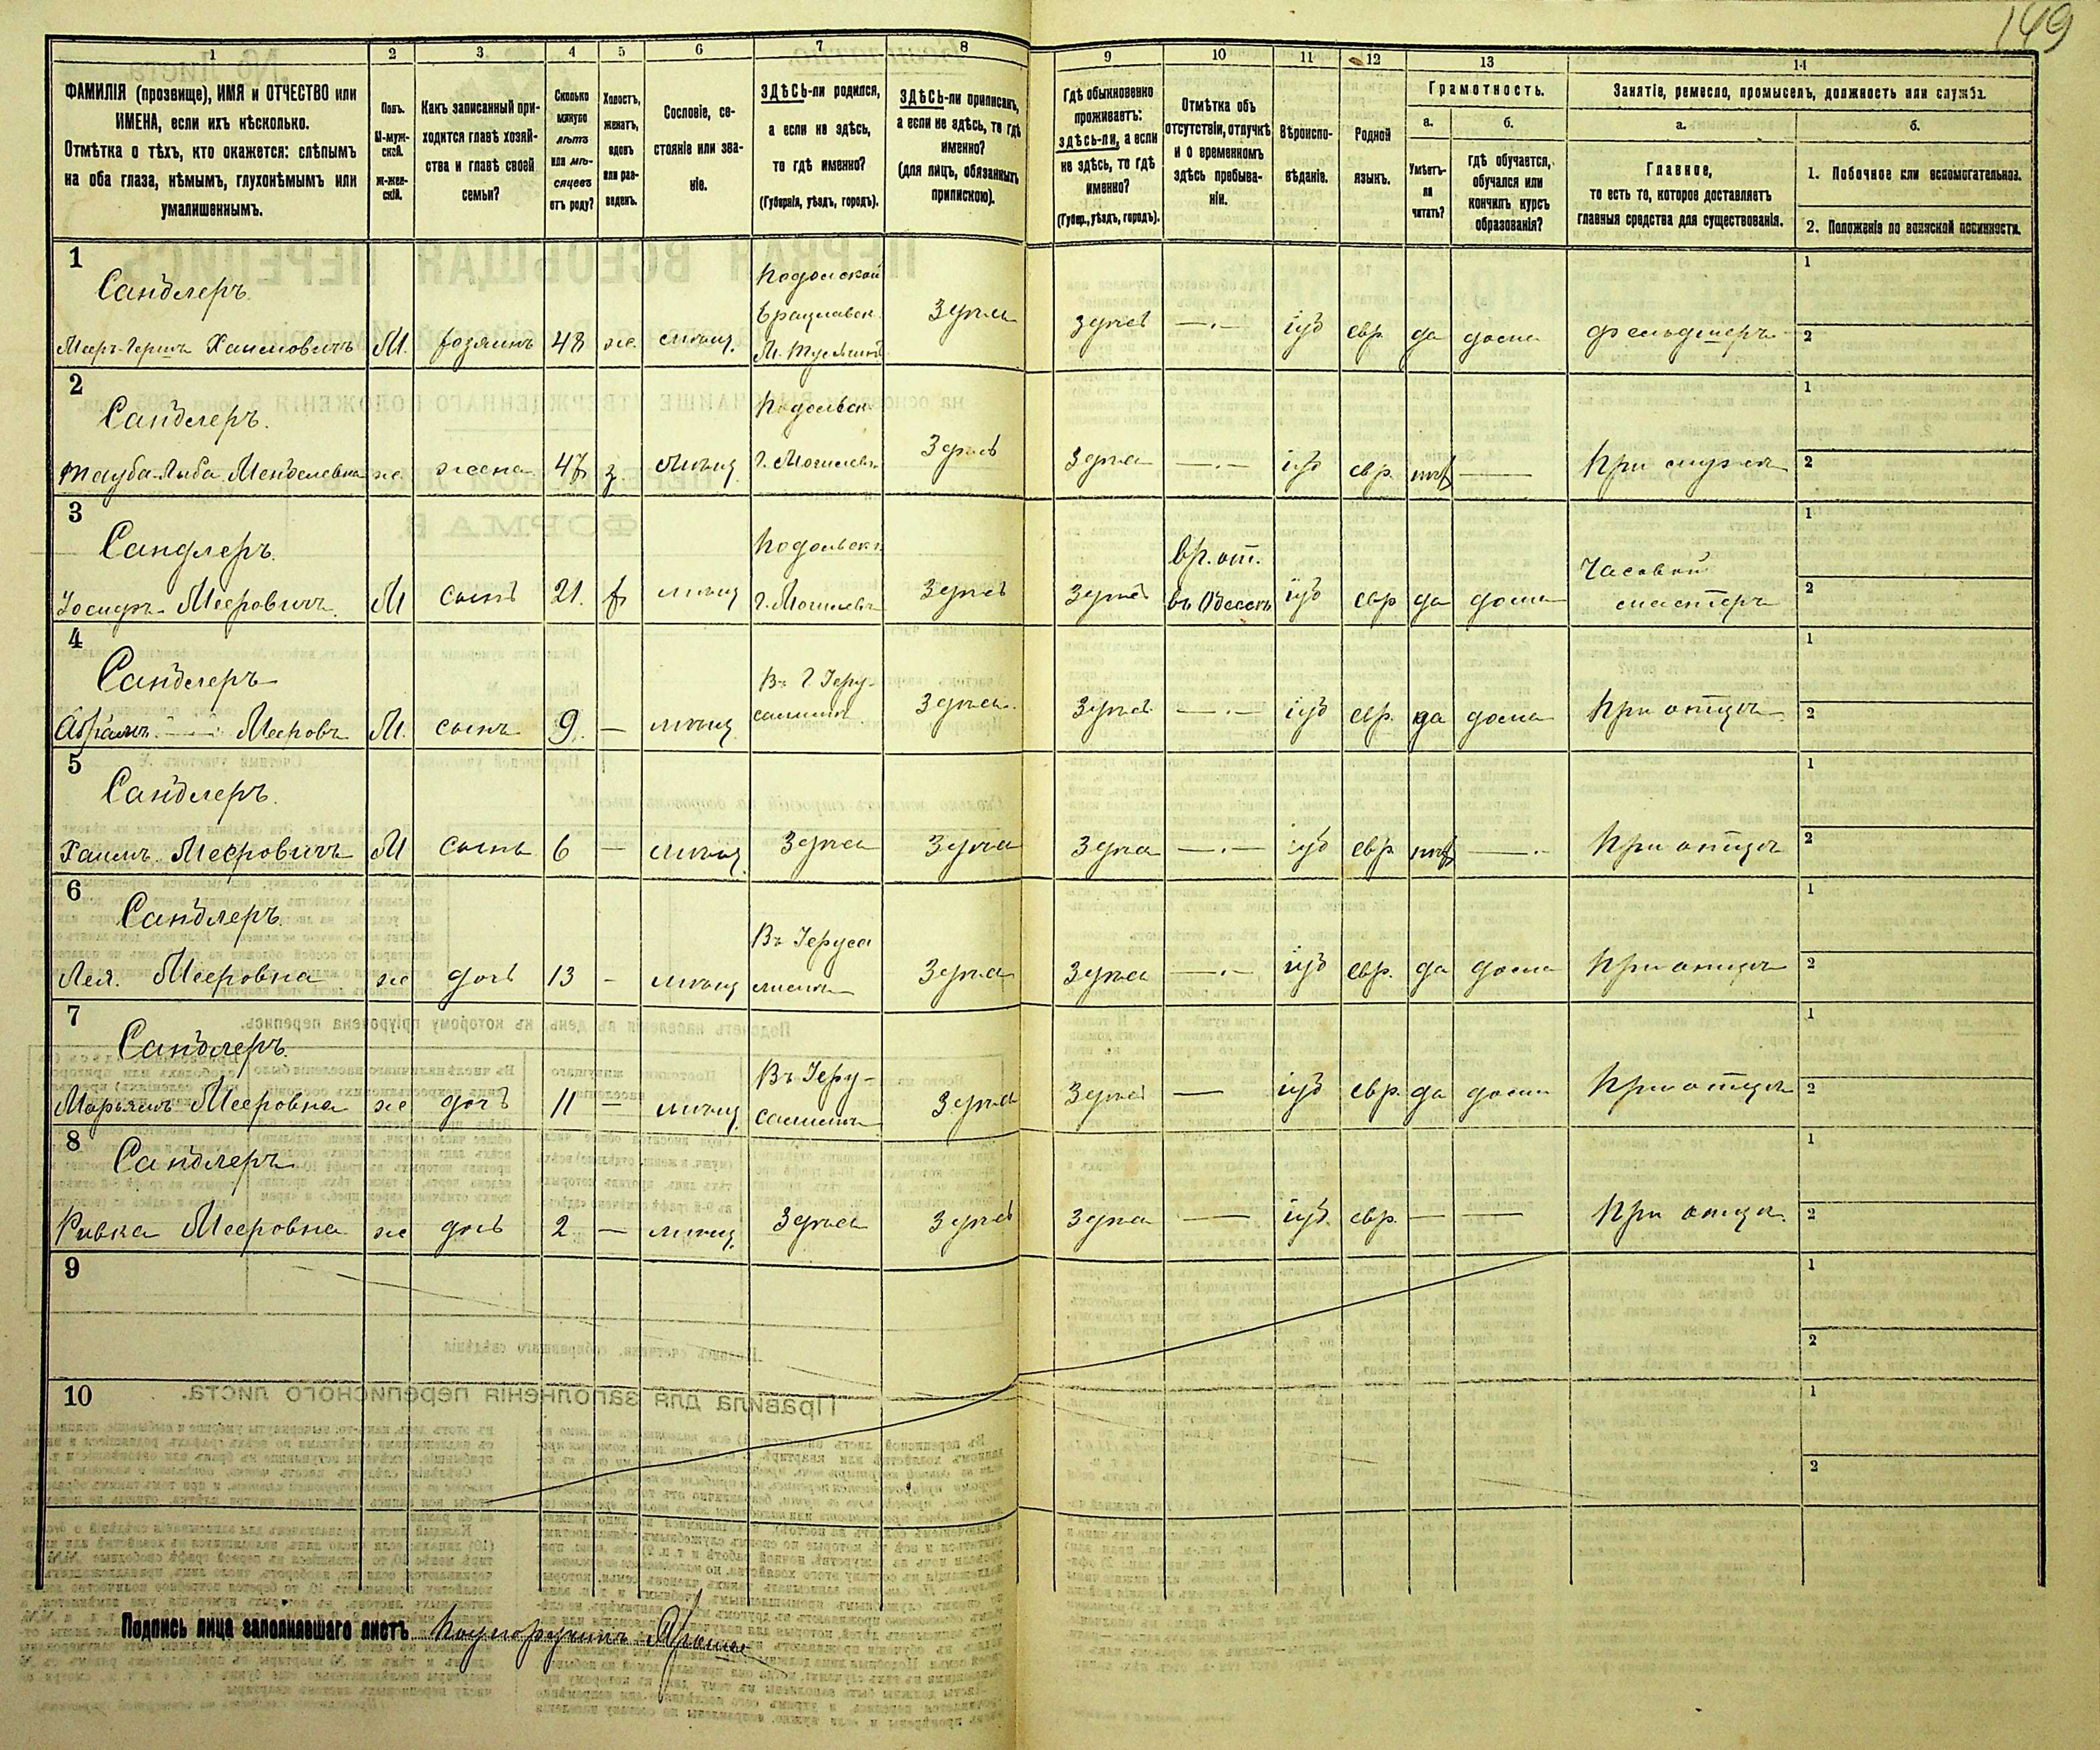 149
1 2 3 4 5 6 7 8 9 10 11 12 13 14
ФАМИЛІЯ (прозвище), ИМЯ и ОТЧЕСТВО или
ИМЕНА, если ихъ нѣсколько.
Отмѣтка о тѣхъ, кто окажется: слѣпымъ
на оба глаза, нѣмымъ, глухонѣмымъ или
умалишеннымъ.
Полъ.
М-муж-
ской.
ж-жен-
скій.
Какъ записанный при-
ходится главѣ хозяй-
ства и главѣ своей
семьи?
Сколько
минуло
лѣтъ
или мѣ-
сяцевъ
отъ роду?
Холостъ,
женатъ,
вдовъ
или раз-
веденъ.
Сословіе, со-
стояніе или зва-
ніе.
ЗДѢСЬ-ли родился,
а если не здѣсь,
то гдѣ именно?
(Губернія, уѣздъ, городъ).
ЗДѢСЬ-ли приписанъ,
а если не здѣсь, то гдѣ
именно?
(для лицъ, обязанныхъ
припискою).
Гдѣ обыкновенно
проживаетъ:
здѣсь-ли, а если
не здѣсь, то гдѣ
именно?
(Губер., уѣздъ, городъ).
Отмѣтка объ
отсутствіи, отлучкѣ
и о временномъ
здѣсь пребыва-
ніи.
Вѣроиспо-
вѣданіе.
Родной
языкъ.
Грамотность.
а.
Умѣетъ-
ли
читать?
б.
гдѣ обучается,
обучался или
кончилъ курсъ
образованія?
Занятіе, ремесло, промыселъ, должность или служба.
а.
Главное,
то есть то, которое доставляетъ
главныя средства для существованія.
б.
1. Побочное или вспомогательное.
2. Положеніе по воинской повинности.
1
Сандлеръ
Подольской
Брацлавск.
Мееръ-Гершъ Хаимовичъ М. хозяинъ 48 же. мѣщ. здѣсь здѣсь —·— іуд евр. да дома фельдшеръ
1
2
2
Сандлеръ.
Подольск.
Тауба-Лыба Менделевна же жена 47 з. мѣщ. г. Могилевъ здѣсь здѣсь —·— іуд евр. нѣт — При мужѣ
1
2
3
Сандлеръ.
Подольск.
вр. от.
Часовой
Іосифъ Мееровичъ М сынъ 21. х мѣщ г. Могилевъ здѣсь здѣсь въ Одессѣ іуд евр да дома мастеръ
1
2
4
Сандлеръ
Въ г. Іеру-
Абрамъ Мееровъ М. сынъ 9. — мѣщ салимѣ здѣсь здѣсь —·— іуд евр. да дома При отцѣ
1
2
5
Сандлеръ.
Хаимъ Мееровичъ М сынъ 6 — мѣщ здѣсь здѣсь здѣсь —·— іуд евр. нѣт —·— При отцѣ
1
2
6
Сандлеръ.
Въ Іеруса
Лея. Мееровна же дочь 13 — мѣщ лимѣ здѣсь здѣсь —·— іуд евр. да дома При отцѣ
1
2
7
Сандлеръ.
Въ Іеру-
Марьямъ Мееровна же дочь 11 — мѣщ салимѣ здѣсь здѣсь — іуд евр. да дома При отцѣ
1
2
8
Сандлеръ
Ривка Мееровна же дочь 2 — мѣщ. здѣсь здѣсь здѣсь — іуд. евр. — — При отцѣ
1
2
9
1
2
10
1
2
Подпись лица заполнявшаго листъ